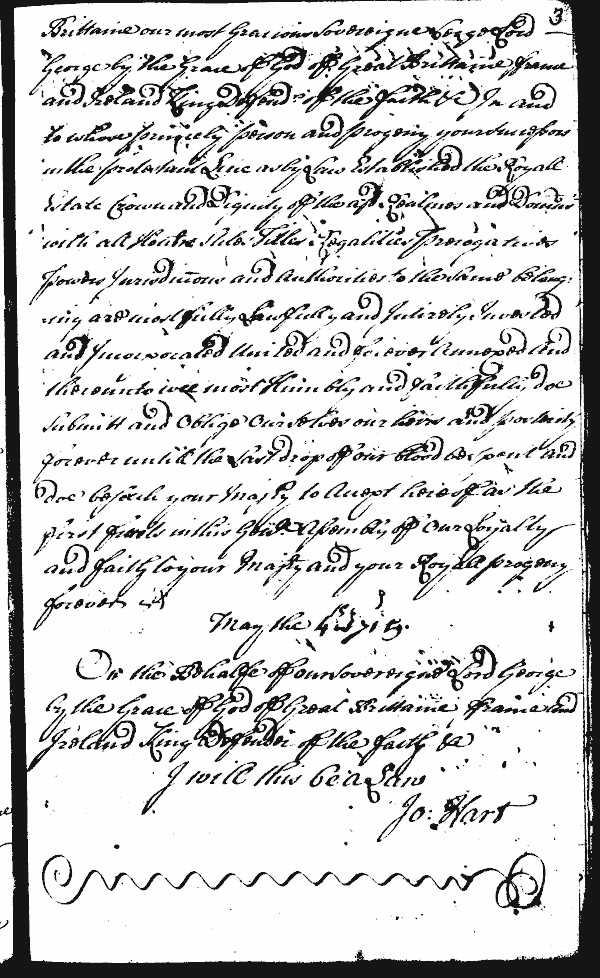 3
Brittaine our most Gracious Sovereigne Leige Lord
George by the Grace of God of Great Brittaine ffrance
and Ireland King Defendr of the faith &c In and
to whose princely person and progeny your Successors
in the protestant Line as by Law Established the Royall
Estate Crown and Dignity of the afd. Realmes and Domins
with all Honrs stile Titles Regalities prerogatives
powers Jurisdictions and Authorities to the same belong
ing are most fully Lawfully and Intirely Invested
and Incorporated United and forever Annexed And
thereunto wee most Humbly and faithfully doe
Submitt and Oblige Ourselves our heirs and posterity
forever untill the Last drop of our blood be spent and
doe beseech your Majty to Accept hereof as the
first fruits in this Genll. Assembly of Our Loyalty
and faith to your Majty and your Royall progeny
forever
May the 4th 1715.
On the Behalfe of our Sovereigne Lord George
by the Grace of God of Great Brittaine ffrance and
Ireland King Defender of the faith &c
I will this be a Law
Jo: Hart